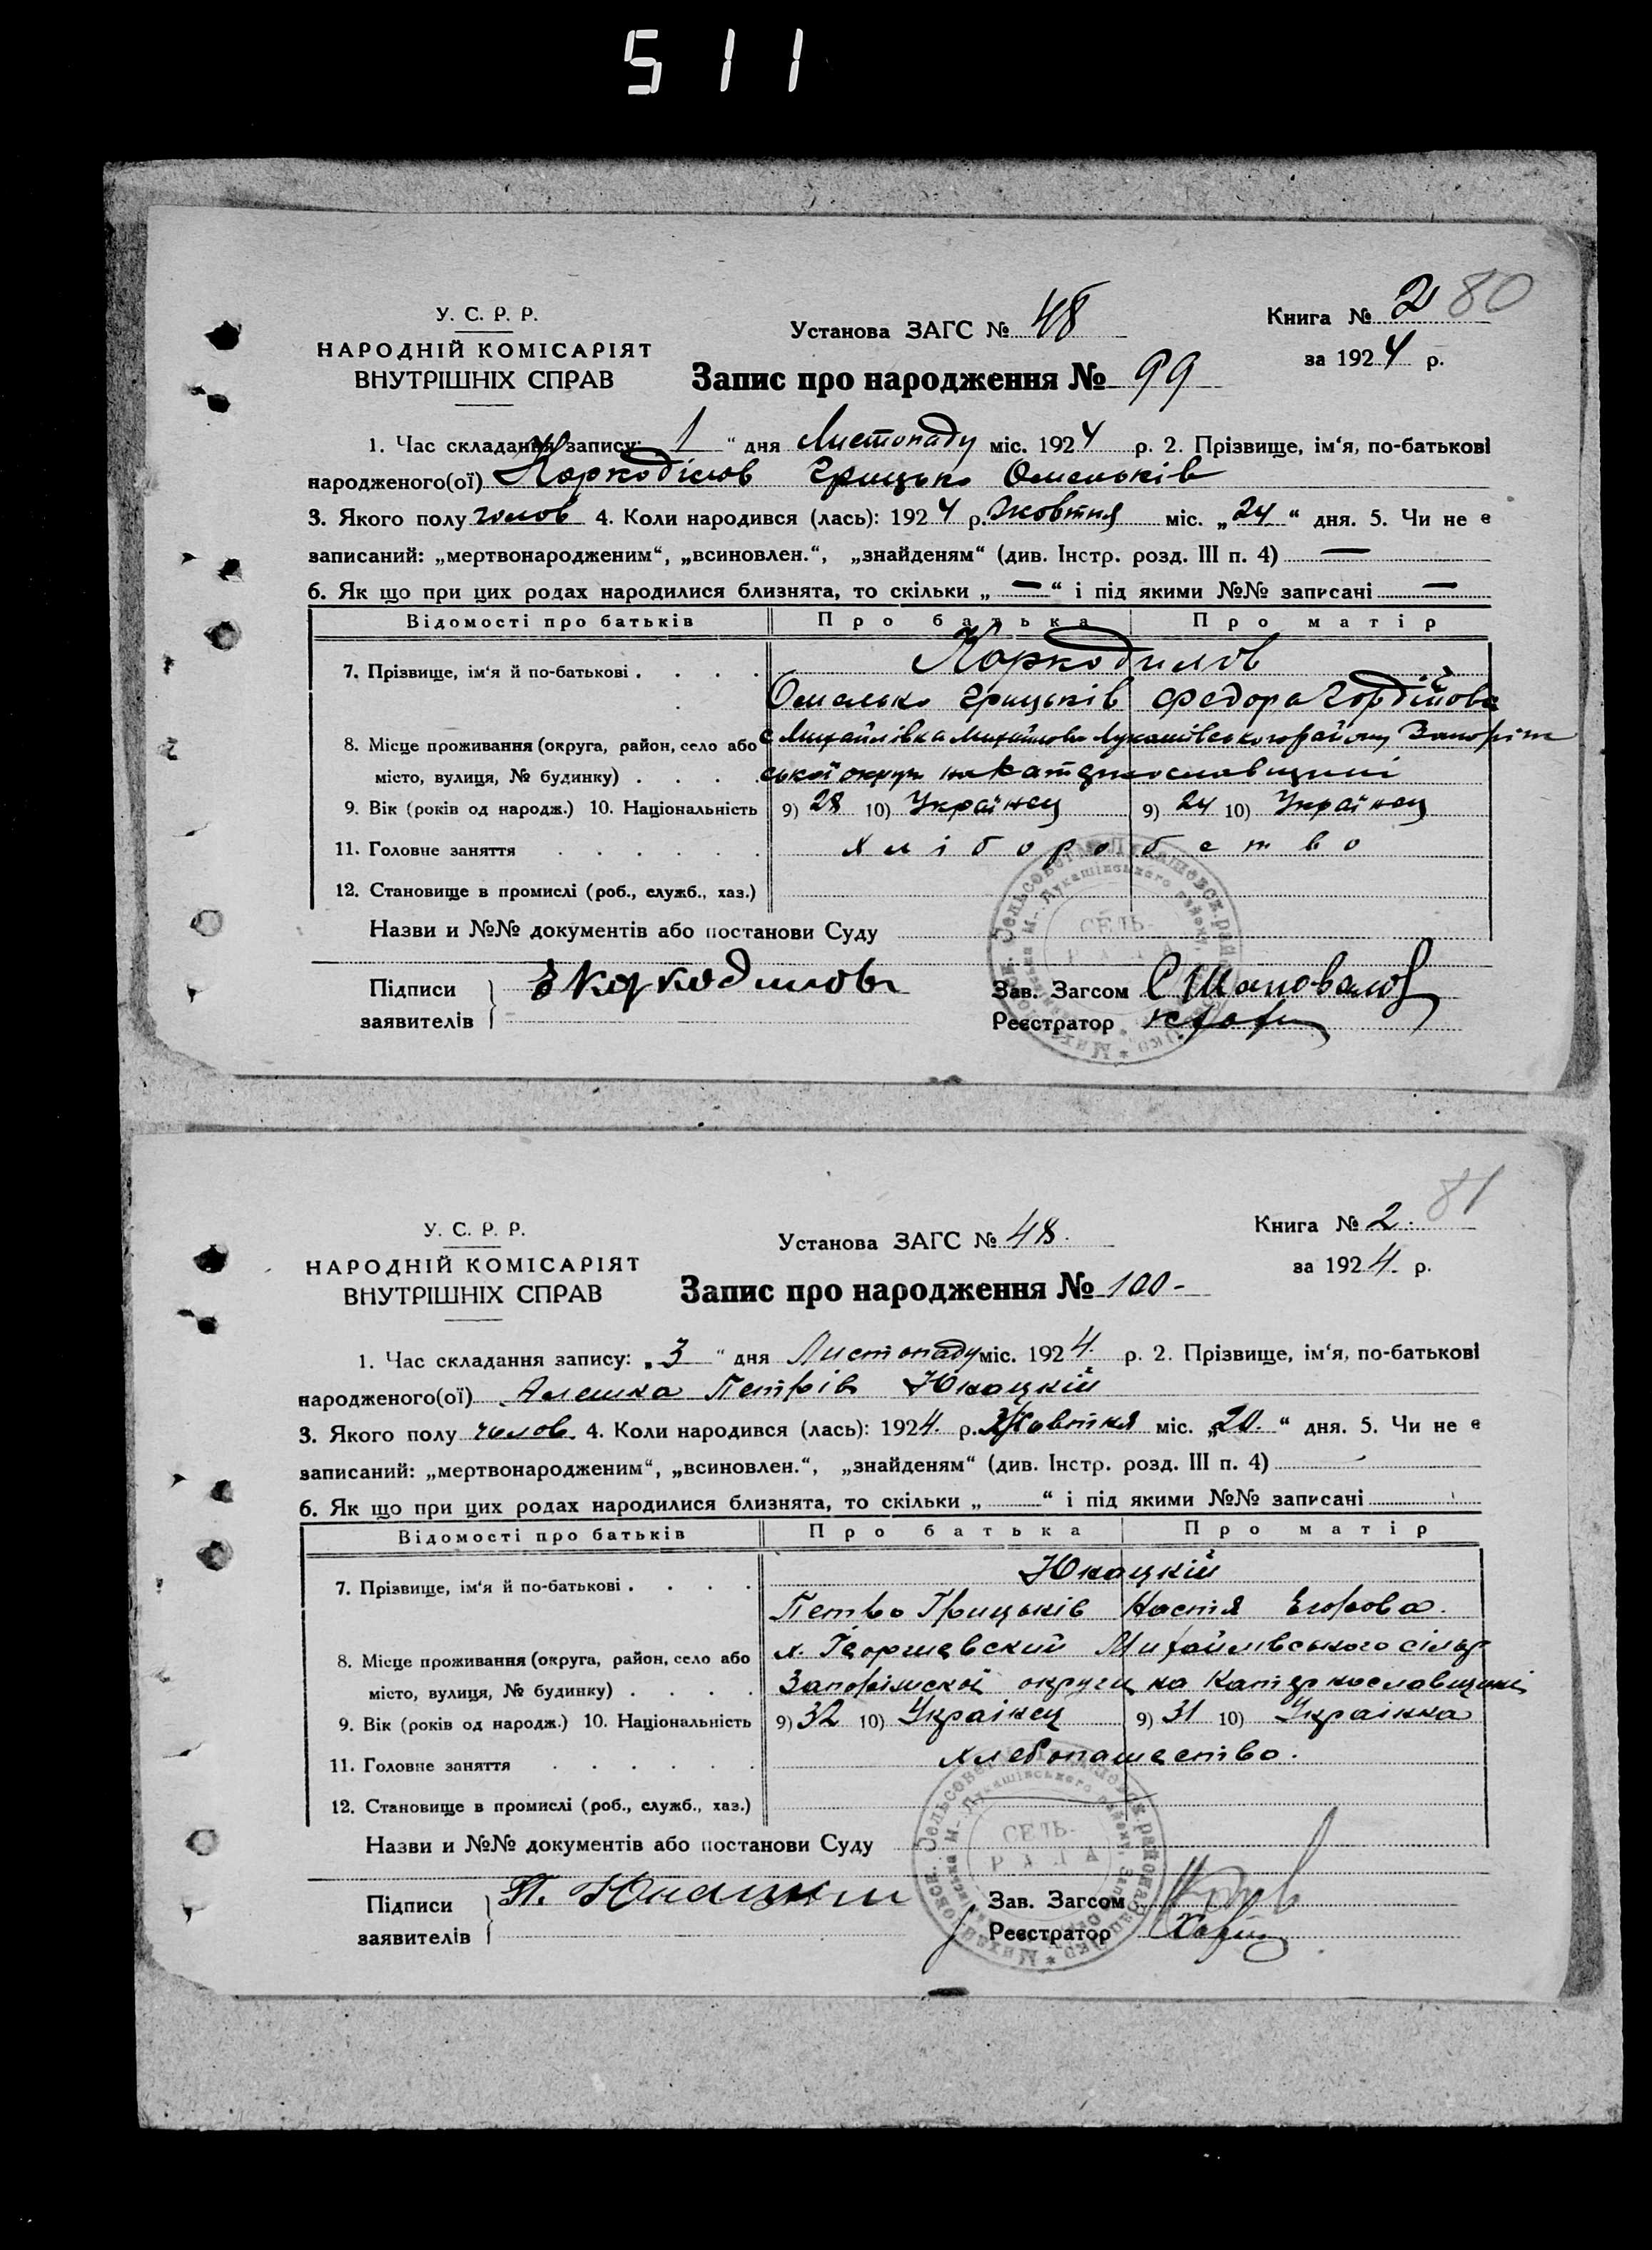 511
80
У. С. Р. Р.
НАРОДНІЙ КОМІСАРІЯТ
ВНУТРІШНІХ СПРАВ
Установа ЗАГС № 48
Книга № 2
за 1924 р.
Запис про народження № 99
1. Час складання запису: 1 “ дня Листопаду міс. 1924 р. 2. Прізвище, ім‘я, по-батькові
народженого(ої) Коркоділов Грицько Омельків
3. Якого полу чолов 4. Коли народився (лась): 1924 р. Жовтня міс. „24“ дня. 5. Чи не є
записаний: „мертвонародженим“, „всиновлен.“, „знайденям“ (див. Інстр. розд. III п. 4) —
6. Як що при цих родах народилися близнята, то скільки „ — “ і під якими №№ записані —
Відомості про батьків Про батька Про матір
7. Прізвище, ім‘я й по-батькові . . . . Коркодилов
Омелько Грицьків Федора Гордійова
8. Місце проживання (округа, район, село або с Михайлівка Лукашівського району Запоріж
місто, вулиця, № будинку) . . . . ської округи на Катеринославщині
9. Вік (років од народж.) 10. Національність 9) 28 10) Українец 9) 24 10) Українец
11. Головне заняття . . . . . . хліборобство
12. Становище в промислі (роб., служб., хаз.)
Назви и №№ документів або постанови Суду
СЕЛЬ-
Підписи
заявителів
Зав. Загсом С Шаповалов
Реєстратор
81
У. С. Р. Р.
НАРОДНІЙ КОМІСАРІЯТ
ВНУТРІШНІХ СПРАВ
Установа ЗАГС № 48.
Книга № 2.
за 1924. р.
Запис про народження № 100-
1. Час складання запису: „3“ дня Листопаду міс. 1924. р. 2. Прізвище, ім‘я, по-батькові
народженого(ої) Алешка Петрів Юнацкій
3. Якого полу чолов. 4. Коли народився (лась): 1924. р. Жовтня міс. „20.“ дня. 5. Чи не є
записаний: „мертвонародженим“, „всиновлен.“, „знайденям“ (див. Інстр. розд. III п. 4)
6. Як що при цих родах народилися близнята, то скільки „ “ і під якими №№ записані
Відомості про батьків Про батька Про матір
7. Прізвище, ім‘я й по-батькові . . . . Юнацкій
Петро Грицьків Настя Егорова.
8. Місце проживання (округа, район, село або х. Георгиевский Михайлівського сільр
місто, вулиця, № будинку) . . . . Запоріжскої округи на Катеринославщині
9. Вік (років од народж.) 10. Національність 9) 32 10) Українец 9) 31 10) Українка
11. Головне заняття . . . . . . хлебопашество.
12. Становище в промислі (роб., служб., хаз.)
Назви и №№ документів або постанови Суду
СЕЛЬ-
РАДА
Підписи П. Юнацкій
заявителів
Зав. Загсом
Реєстратор